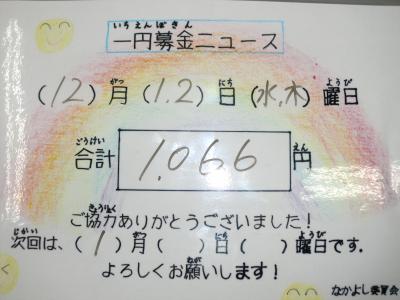 いちえんぼきん
一円募金ニュース
がつ にち ようび
(12)月(1.2)日(水,木)曜日
ごうけい えん
合計 1,066 円
きょうりょく
ご協力ありがとうございました!
じかい がつ にち ようび
次回は、(1)月( )日( )曜日です.
ねが
よろしくお願いします!
なかよし委員会